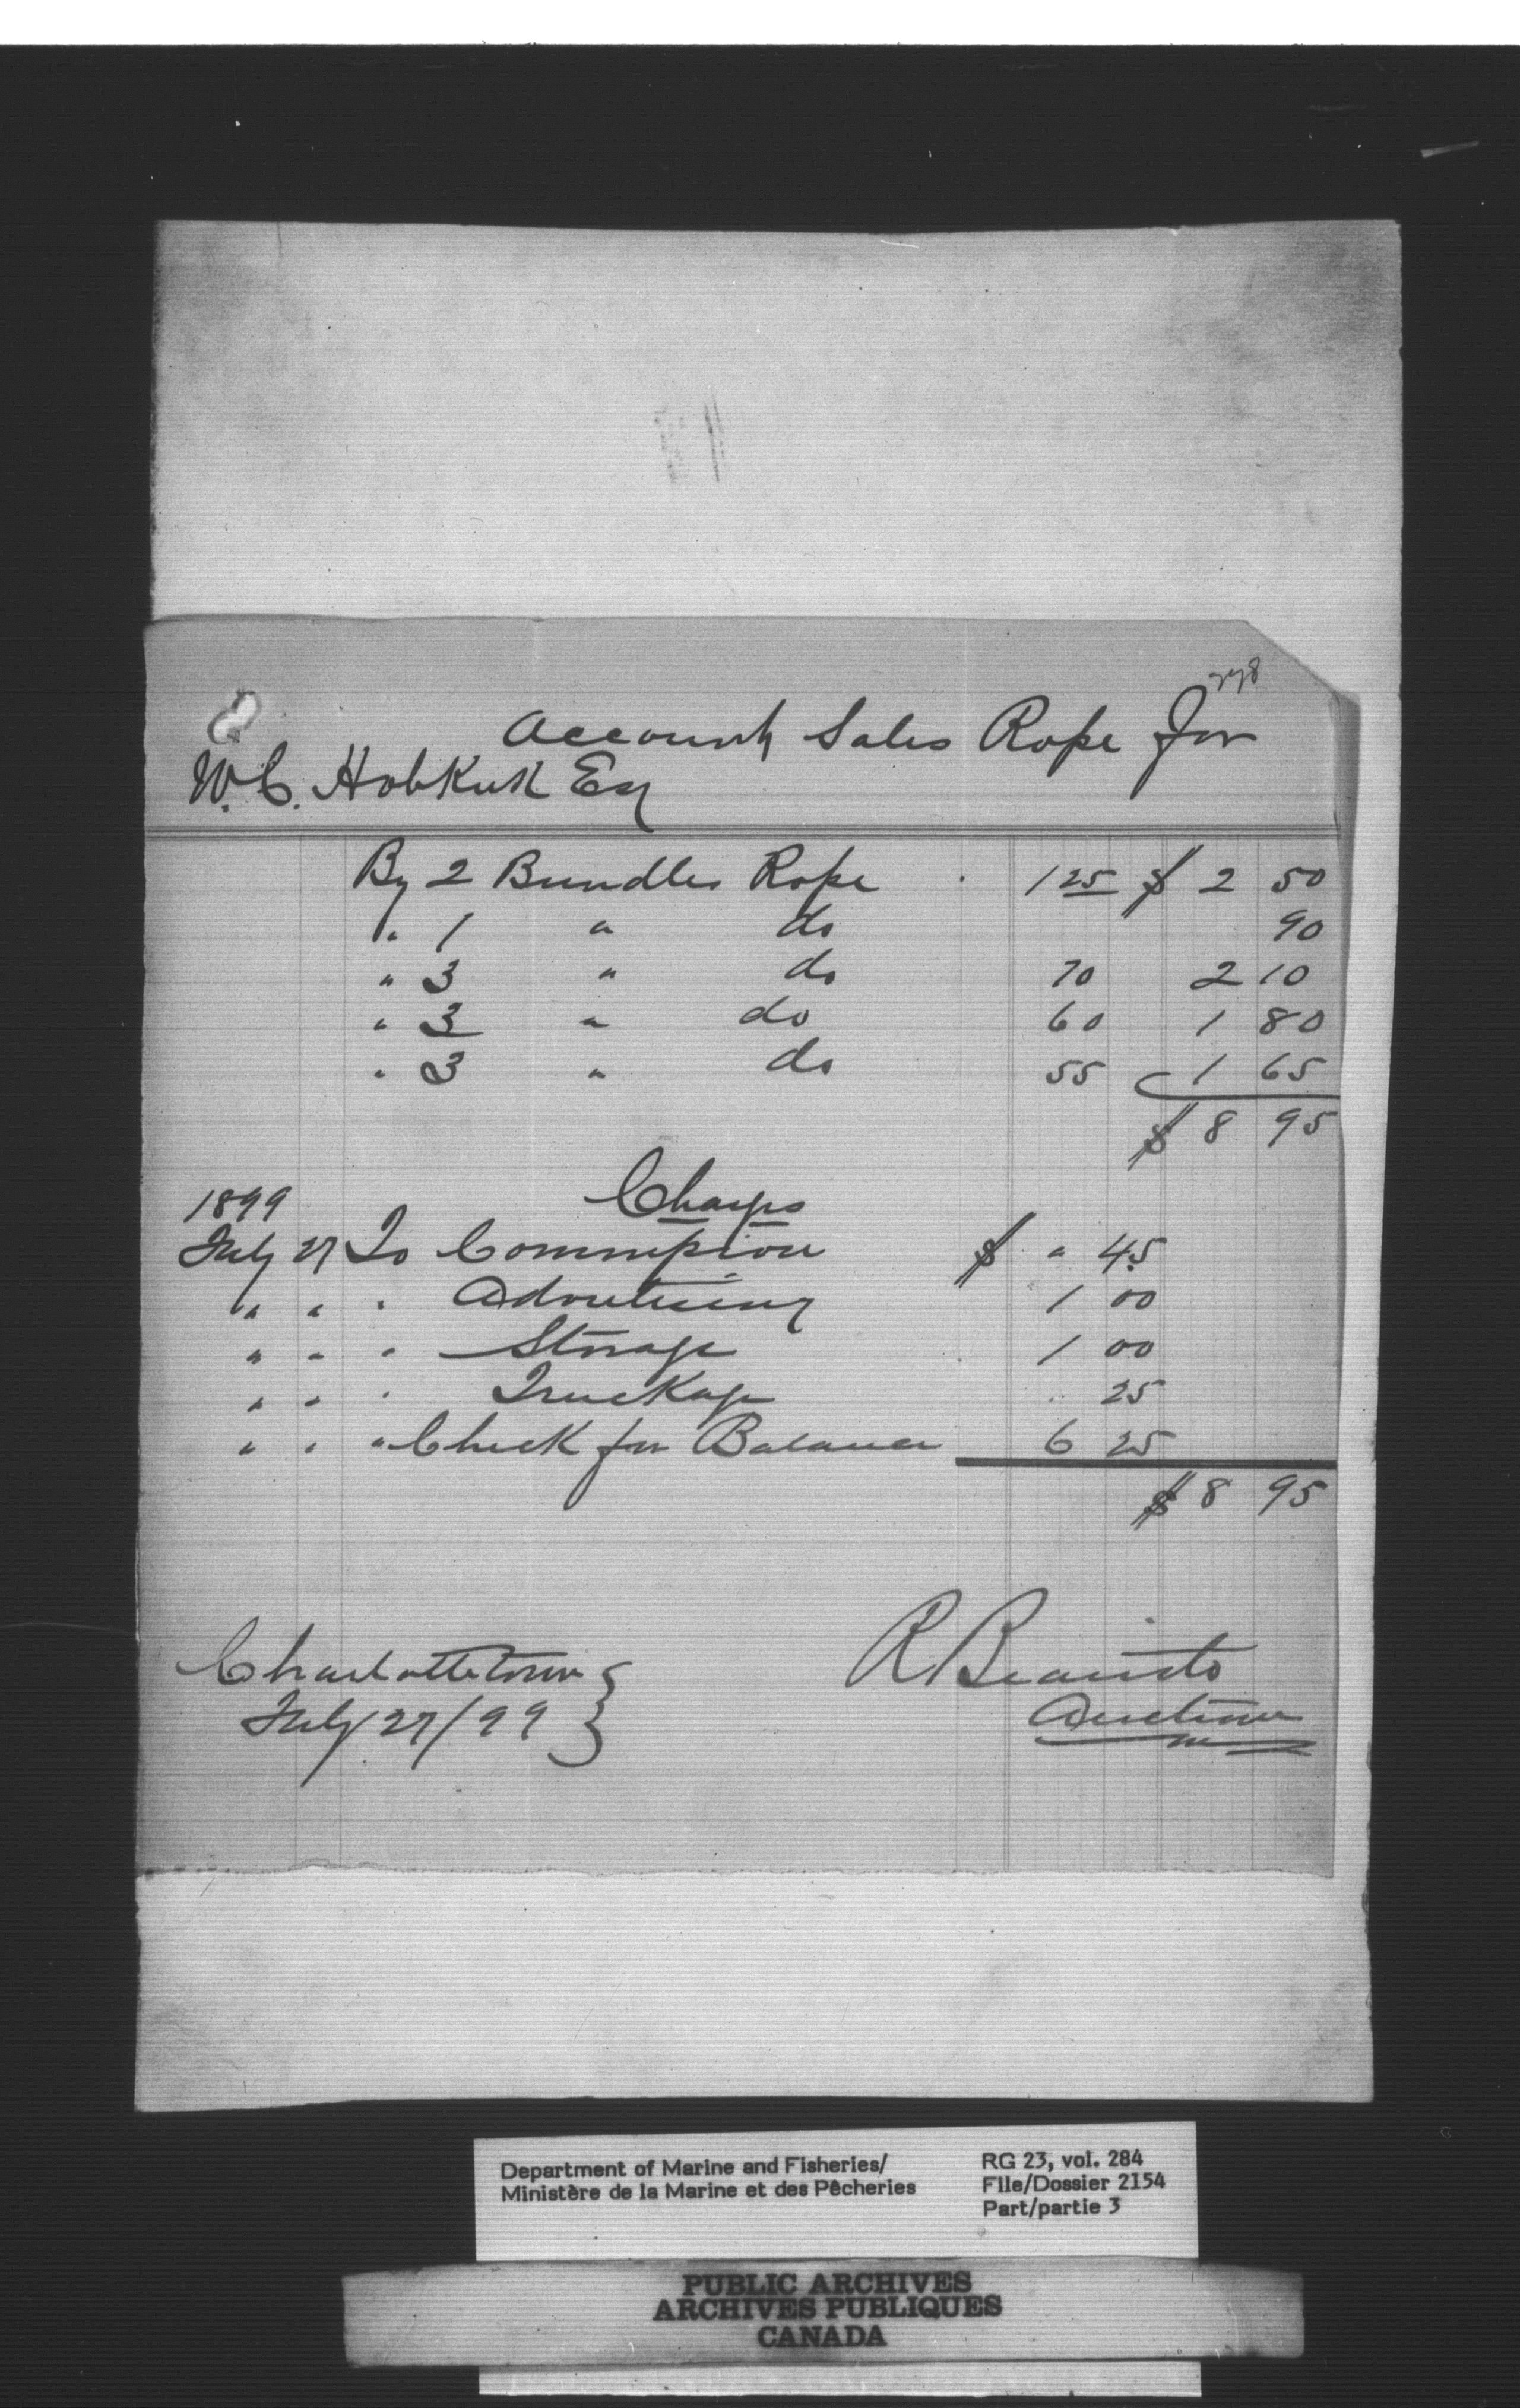 Account Sales Rope for
W. C. Hobkirk Esq
By 2 Bundles Rope 1 25 $ 2 50
" 1 " do 90
" 3 " do 70 2 10
" 3 " do 60 1 80
" 3 " do 55 1 65
$ 8 95
Charges
1899
July 27 To Commission $ " 45
" " " Advertising 1 00
" " " Storage 1 00
" " " Truckage 25
" " " Check for Balance 6 25
$ 8 95
Charlottetown
July 27/99
R
Auctioneer
Department of Marine and Fisheries/
Ministère de la Marine et des Pêcheries
RG 23, vol. 284
File/Dossier 2154
Part/partie 3
PUBLIC ARCHIVES
ARCHIVES PUBLIQUES
CANADA